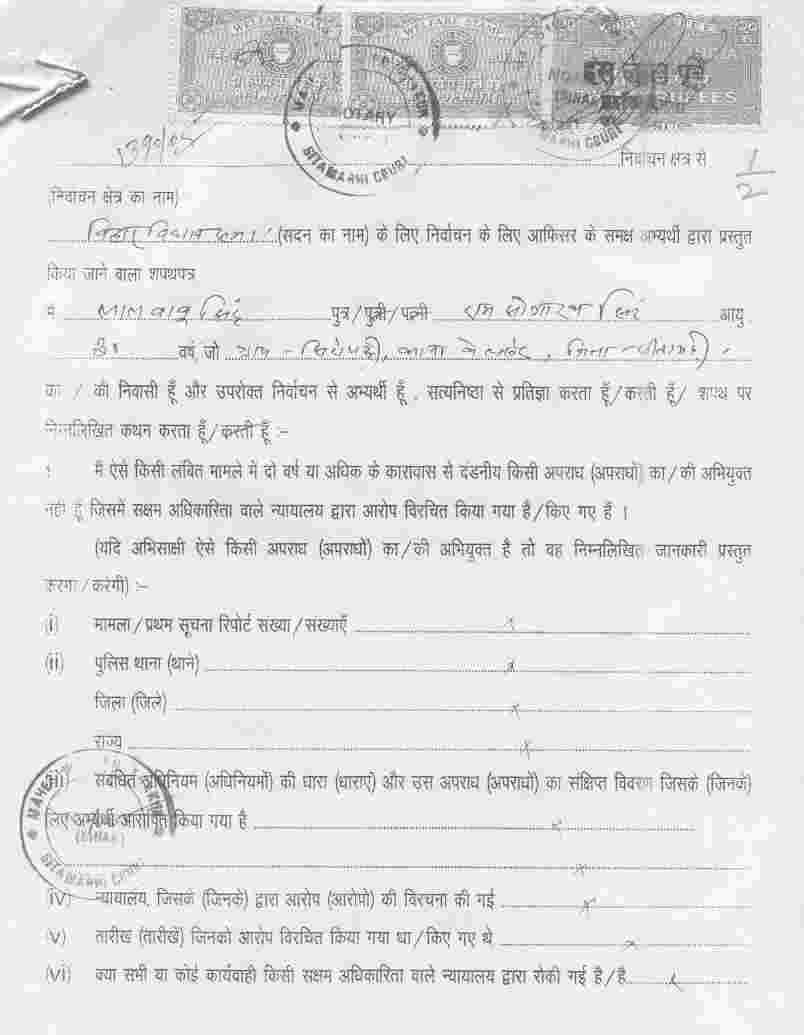 WELFARE STAMP WELFARE STAMP
RUPEES
NOTARY
SITAMARHI COURT
निर्वाचन क्षेत्र से 1/2
(निवाचन क्षेत्र का नाम)
(सदन का नाम) के लिए निर्वाचन के लिए आफिसर के समक्ष अभ्यर्थी द्वारा प्रस्तुत
किया जाने वाला शपथपत्र
लाल बाबु सिंह पुत्र/पुत्री/पत्नी राम सिंह आयु
वर्ष, जो ग्राम
का / की निवासी हूँ और उपरोक्त निर्वाचन से अभ्यर्थी हूँ , सत्यनिष्ठा से प्रतिज्ञा करता हूँ/करती हूँ/ शपथ पर
निम्नलिखित कथन करता हूँ/करती हूँ :-
मैं ऐसे किसी लंबित मामले में दो वर्ष या अधिक के कारावास से दंडनीय किसी अपराध (अपराधों) का/की अभियुक्त
नहीं हूँ जिसमें सक्षम अधिकारिता वाले न्यायालय द्वारा आरोप विरचित किया गया है/किए गए हैं ।
(यदि अभिसाक्षी ऐसे किसी अपराध (अपराधों) का/की अभियुक्त है तो वह निम्नलिखित जानकारी प्रस्तुत
करेगा/करेगी) :-
(i) मामला/प्रथम सूचना रिपोर्ट संख्या/संख्याएँ x
(ii) पुलिस थाना (थाने) x
जिला (जिले) x
राज्य x
संबंधित अधिनियम (अधिनियमों) की धारा (धाराएं) और उस अपराध (अपराधों) का संक्षिप्त विवरण जिसके (जिनके)
लिए अभ्यर्थी आरोपित किया गया है x
x
SITAMARHI COURT
(iv) न्यायालय, जिसके (जिनके) द्वारा आरोप (आरोपो) की विरचना की गई x
(v) तारीख (तारीखें) जिनको आरोप विरचित किया गया था/किए गए थे x
(vi) क्या सभी या कोई कार्यवाही किसी सक्षम अधिकारिता वाले न्यायालय द्वारा रोकी गई है/हैं x